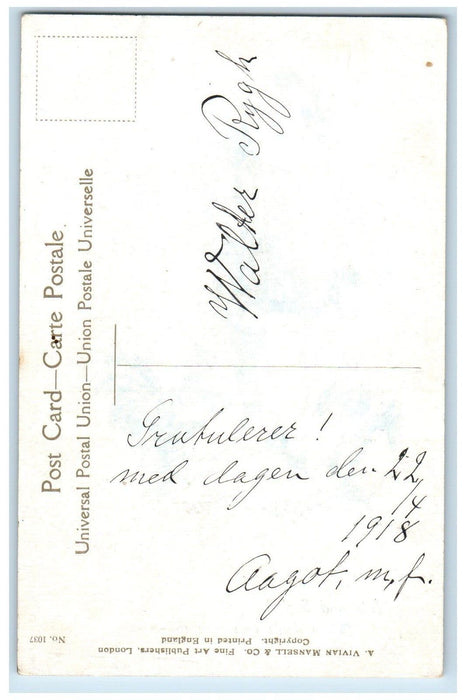 Post Card—Carte Postale
Universal Postal Union—Union Postale Universelle
Walter Rygh
Gratulerer!
med dagen den 22/4
1918
Aagot, m, f.
A. VIVIAN MANSELL & CO. Fine Art Publishers, London
Copyright. Printed in England
No. 1037